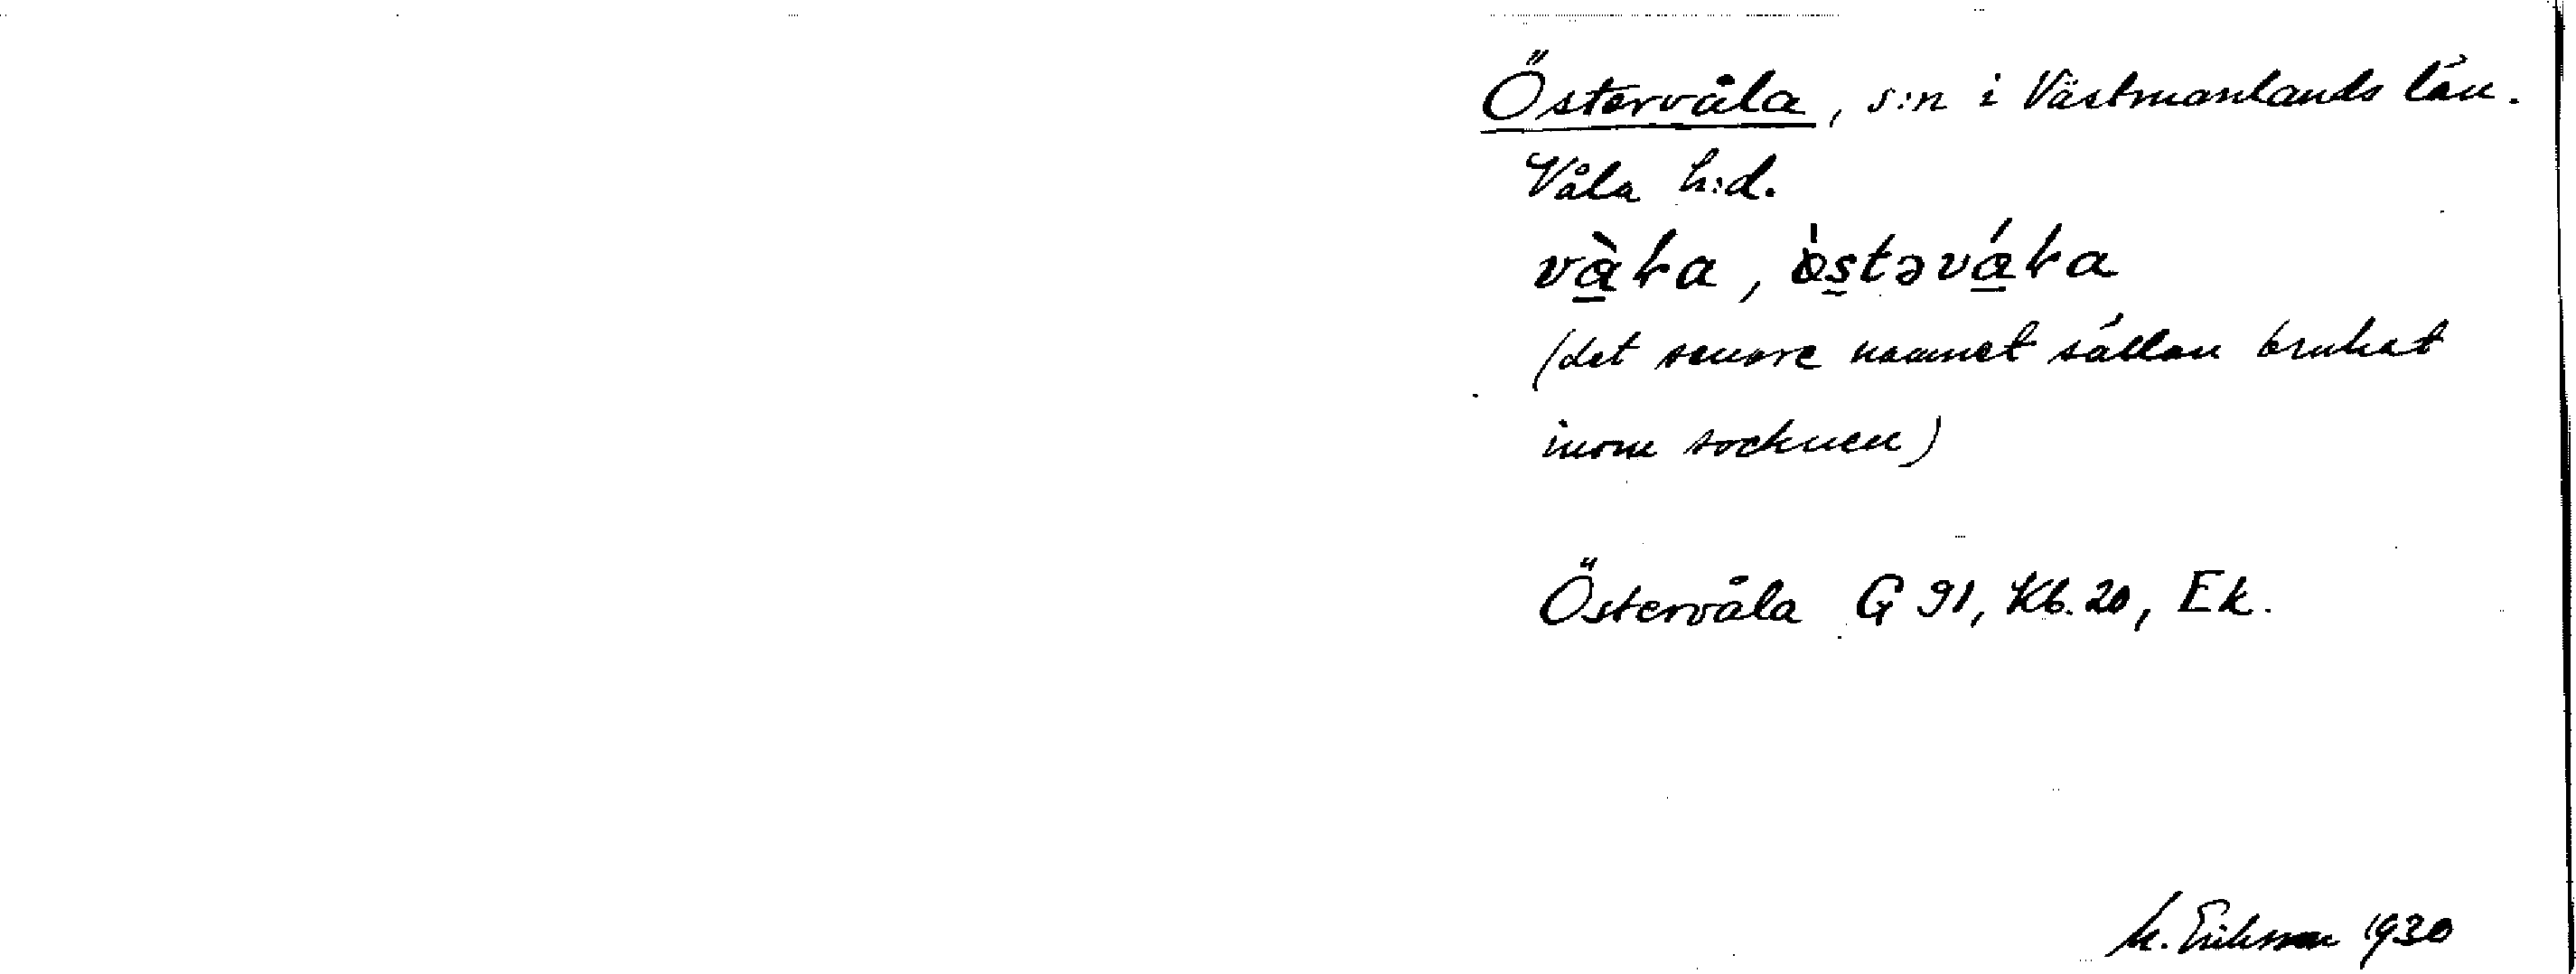 Östervåla, s:n i Västmanlands län.
Våla h:d.
(det senare namnet sällan brukat
inom socknen)
Östervåla G 91, Kb. 20, Ek.
M. Eriksson 1930